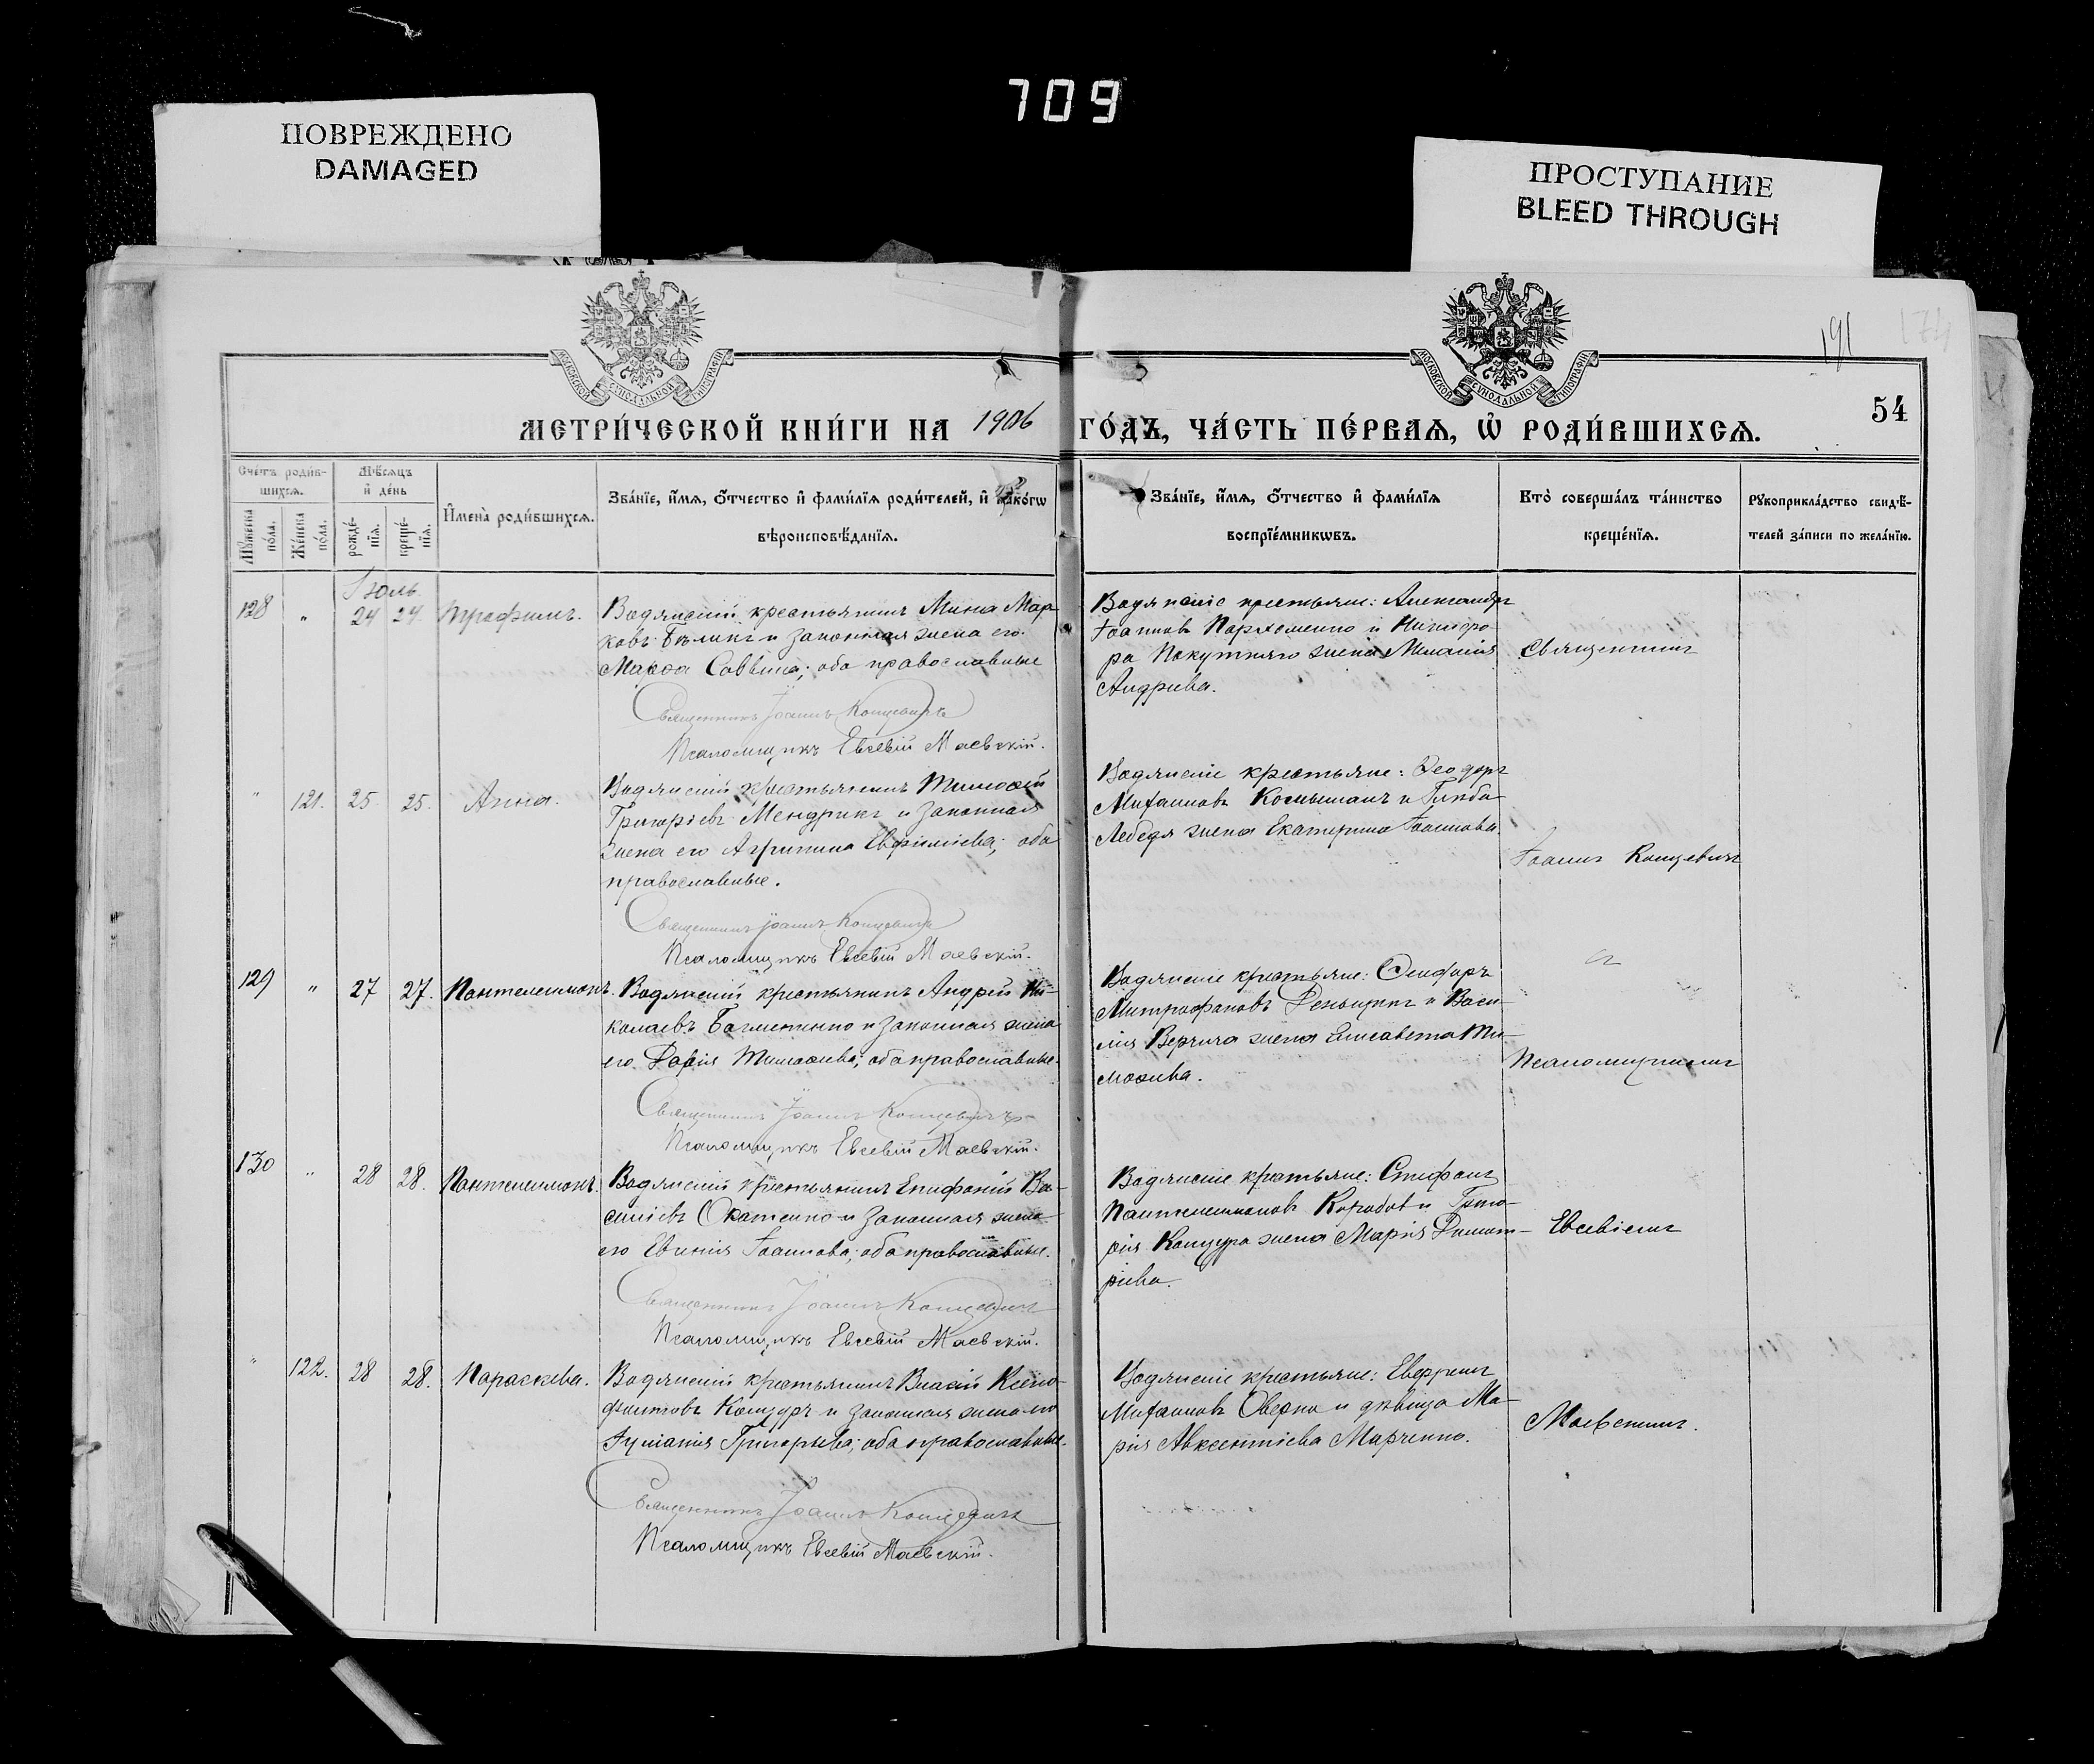 709
ПОВРЕЖДЕНО
DAMAGED
ПРОСТУПАНИЕ
BLEED THROUGH
МОСКОВСКОЙ СѴНОДАЛЬНОЙ ТИПОГРАФІИ
МОСКОВСКОЙ СѴНОДАЛЬНОЙ ТИПОГРАФІИ
191
174
54
МЕТРИ́ЧЕСКОЙ КНИ́ГИ НА 1906 ГО́ДЪ, ЧА́СТЬ ПЕ́РВАѦ, Ѡ҆ РОДИ́ВШИХСѦ.
Сче́тъ роди́в-
шихсѧ.
Мꙋ́жеска
по́ла.
Же́нска
по́ла.
Мѣ́сѧцъ
и҆ де́нь
рожде́-
нїѧ.
креще́-
нїѧ.
И҆мена̀ роди́вшихсѧ.
Зва́нїе, и҆́мѧ, ѻ҆́тчество и҆ фами́лїѧ роди́телей, и҆ како́гѡ
вѣроисповѣ́данїѧ.
Зва́нїе, и҆́мѧ, ѻ҆́тчество и҆ фами́лїѧ
воспрїе́мникѡвъ.
Кто̀ соверша́лъ та́инство
креще́нїѧ.
Рꙋкоприкла́дство свидѣ́-
телей за́писи по жела́нїю.
Іюль
128 " 24 24 Трофимъ.
Водянскій крестьянинъ Мина Мар-
ковъ Бѣликъ и законная жена его
Марѳа Саввина; оба православные
Священникъ Іоаннъ Концевичъ
Псаломщикъ Евсевій Маевскій.
Водянскіе крестьяне: Александръ
Іоанновъ Пархоменко и Никифо-
ра Покутняго жена Меланія
Андреева.
Священникъ
" 121. 25. 25. Анна.
Водянскій крестьянинъ Тимоѳей
Григоріевъ Мендрикъ и законная
жена его Агрипина Евфиміева; оба
православные.
Священникъ Іоаннъ Концевичъ
Псаломщикъ Евсевій Маевскій.
Водянскіе крестьяне: Ѳеодоръ
Михаиловъ и Глѣба
Лебедя жена Екатерина Іоаннова.
Іоаннъ Концевичъ
129 " 27 27. Пантелеимонъ.
Водянскій крестьянинъ Андрей Ни-
колаевъ Багметенко и законная жена
его Тимоѳеева; оба православные.
Священникъ Іоаннъ Концевичъ
Псаломщикъ Евсевій Маевскій.
Водянскіе крестьяне:
Митрофановъ Деньщикъ и Васи-
лія жена Елисавета Ти-
моѳеева.
съ
Псаломщикомъ
130 " 28 28. Пантелеимонъ.
Водянскій крестьянинъ Епифаній Ва-
силіевъ и законная жена
его Іоаннова; оба православные.
Священникъ Іоаннъ Концевичъ
Псаломщикъ Евсевій Маевскій.
Водянскіе крестьяне: Стефанъ
Пантелеимоновъ и Григо-
рія Концура жена Марія Димит-
ріева.
Евсевіемъ
" 122. 28 28. Параскева.
Водянскій крестьянинъ Власій Ксено-
фонтовъ Концуръ и законная жена его
Іуліанія Григорьева; оба православные.
Священникъ Іоаннъ Концевичъ
Псаломщикъ Евсевій Маевскій.
Водянскіе крестьяне: Евфремъ
Михаиловъ и дѣвица Ма-
рія Авксентіева Марченко.
Маевскимъ.